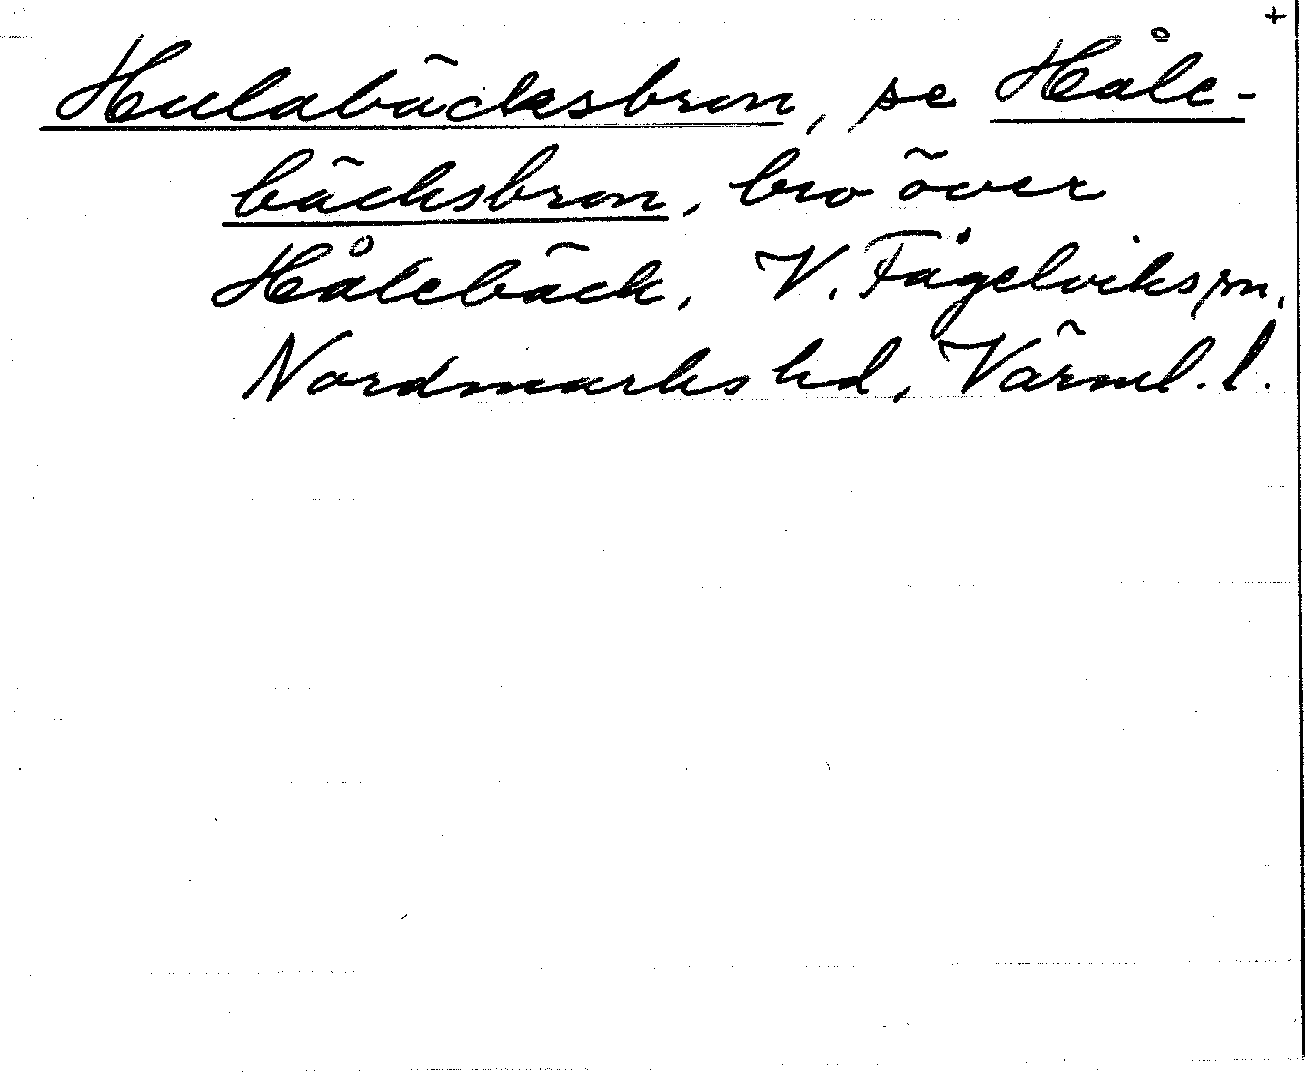 +
Hulabäcksbron, se Håle-
bäcksbron, bro över
Hålebäck, V. Fågelvikspn,
Nordmarks hd, Värml. l.